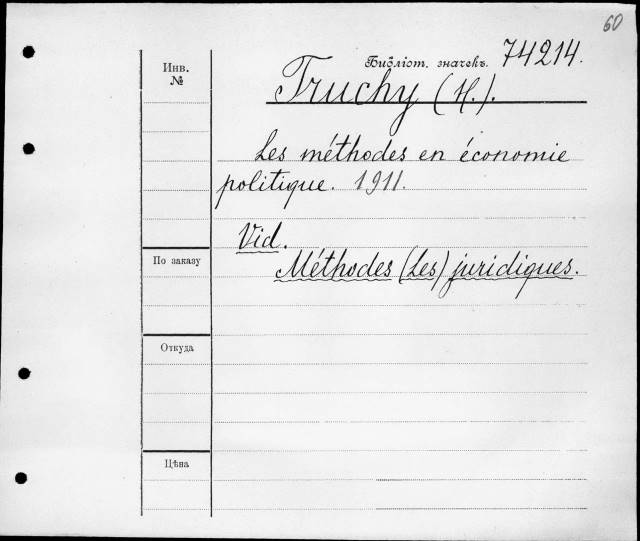 60
Библіот. значекъ. 74214.
Инв.
№
Truchy (H.).
Les méthodes en économie
politique. 1911.
Vid.
Méthodes (Les) juridiques.
По заказу
Откуда
Цѣна